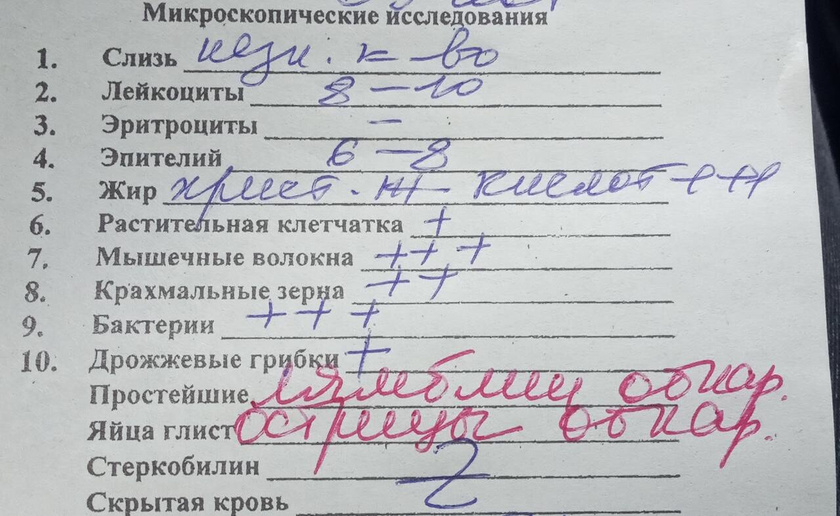 Микроскопические исследования
1. Слизь незн. к-во
2. Лейкоциты 8-10
3. Эритроциты -
4. Эпителий 6-8
5. Жир крист. ж кислот +++
6. Растительная клетчатка +
7. Мышечные волокна +++
8. Крахмальные зерна ++
9. Бактерии +++
10. Дрожжевые грибки +
Простейшие лямблии обнар.
Яйца глист острицы обнар.
Стеркобилин
Скрытая кровь